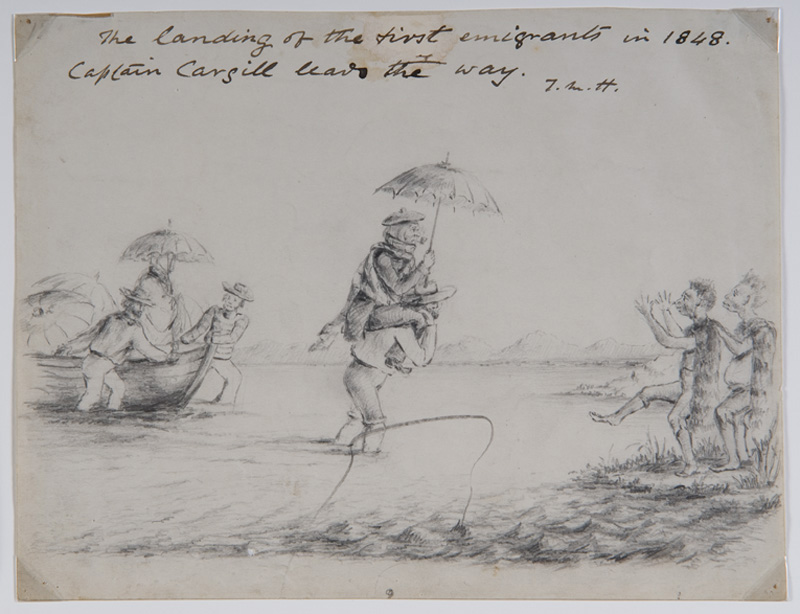 The landing of the first emigrants in 1848.
Captain Cargill leads the way.
T.M.H.